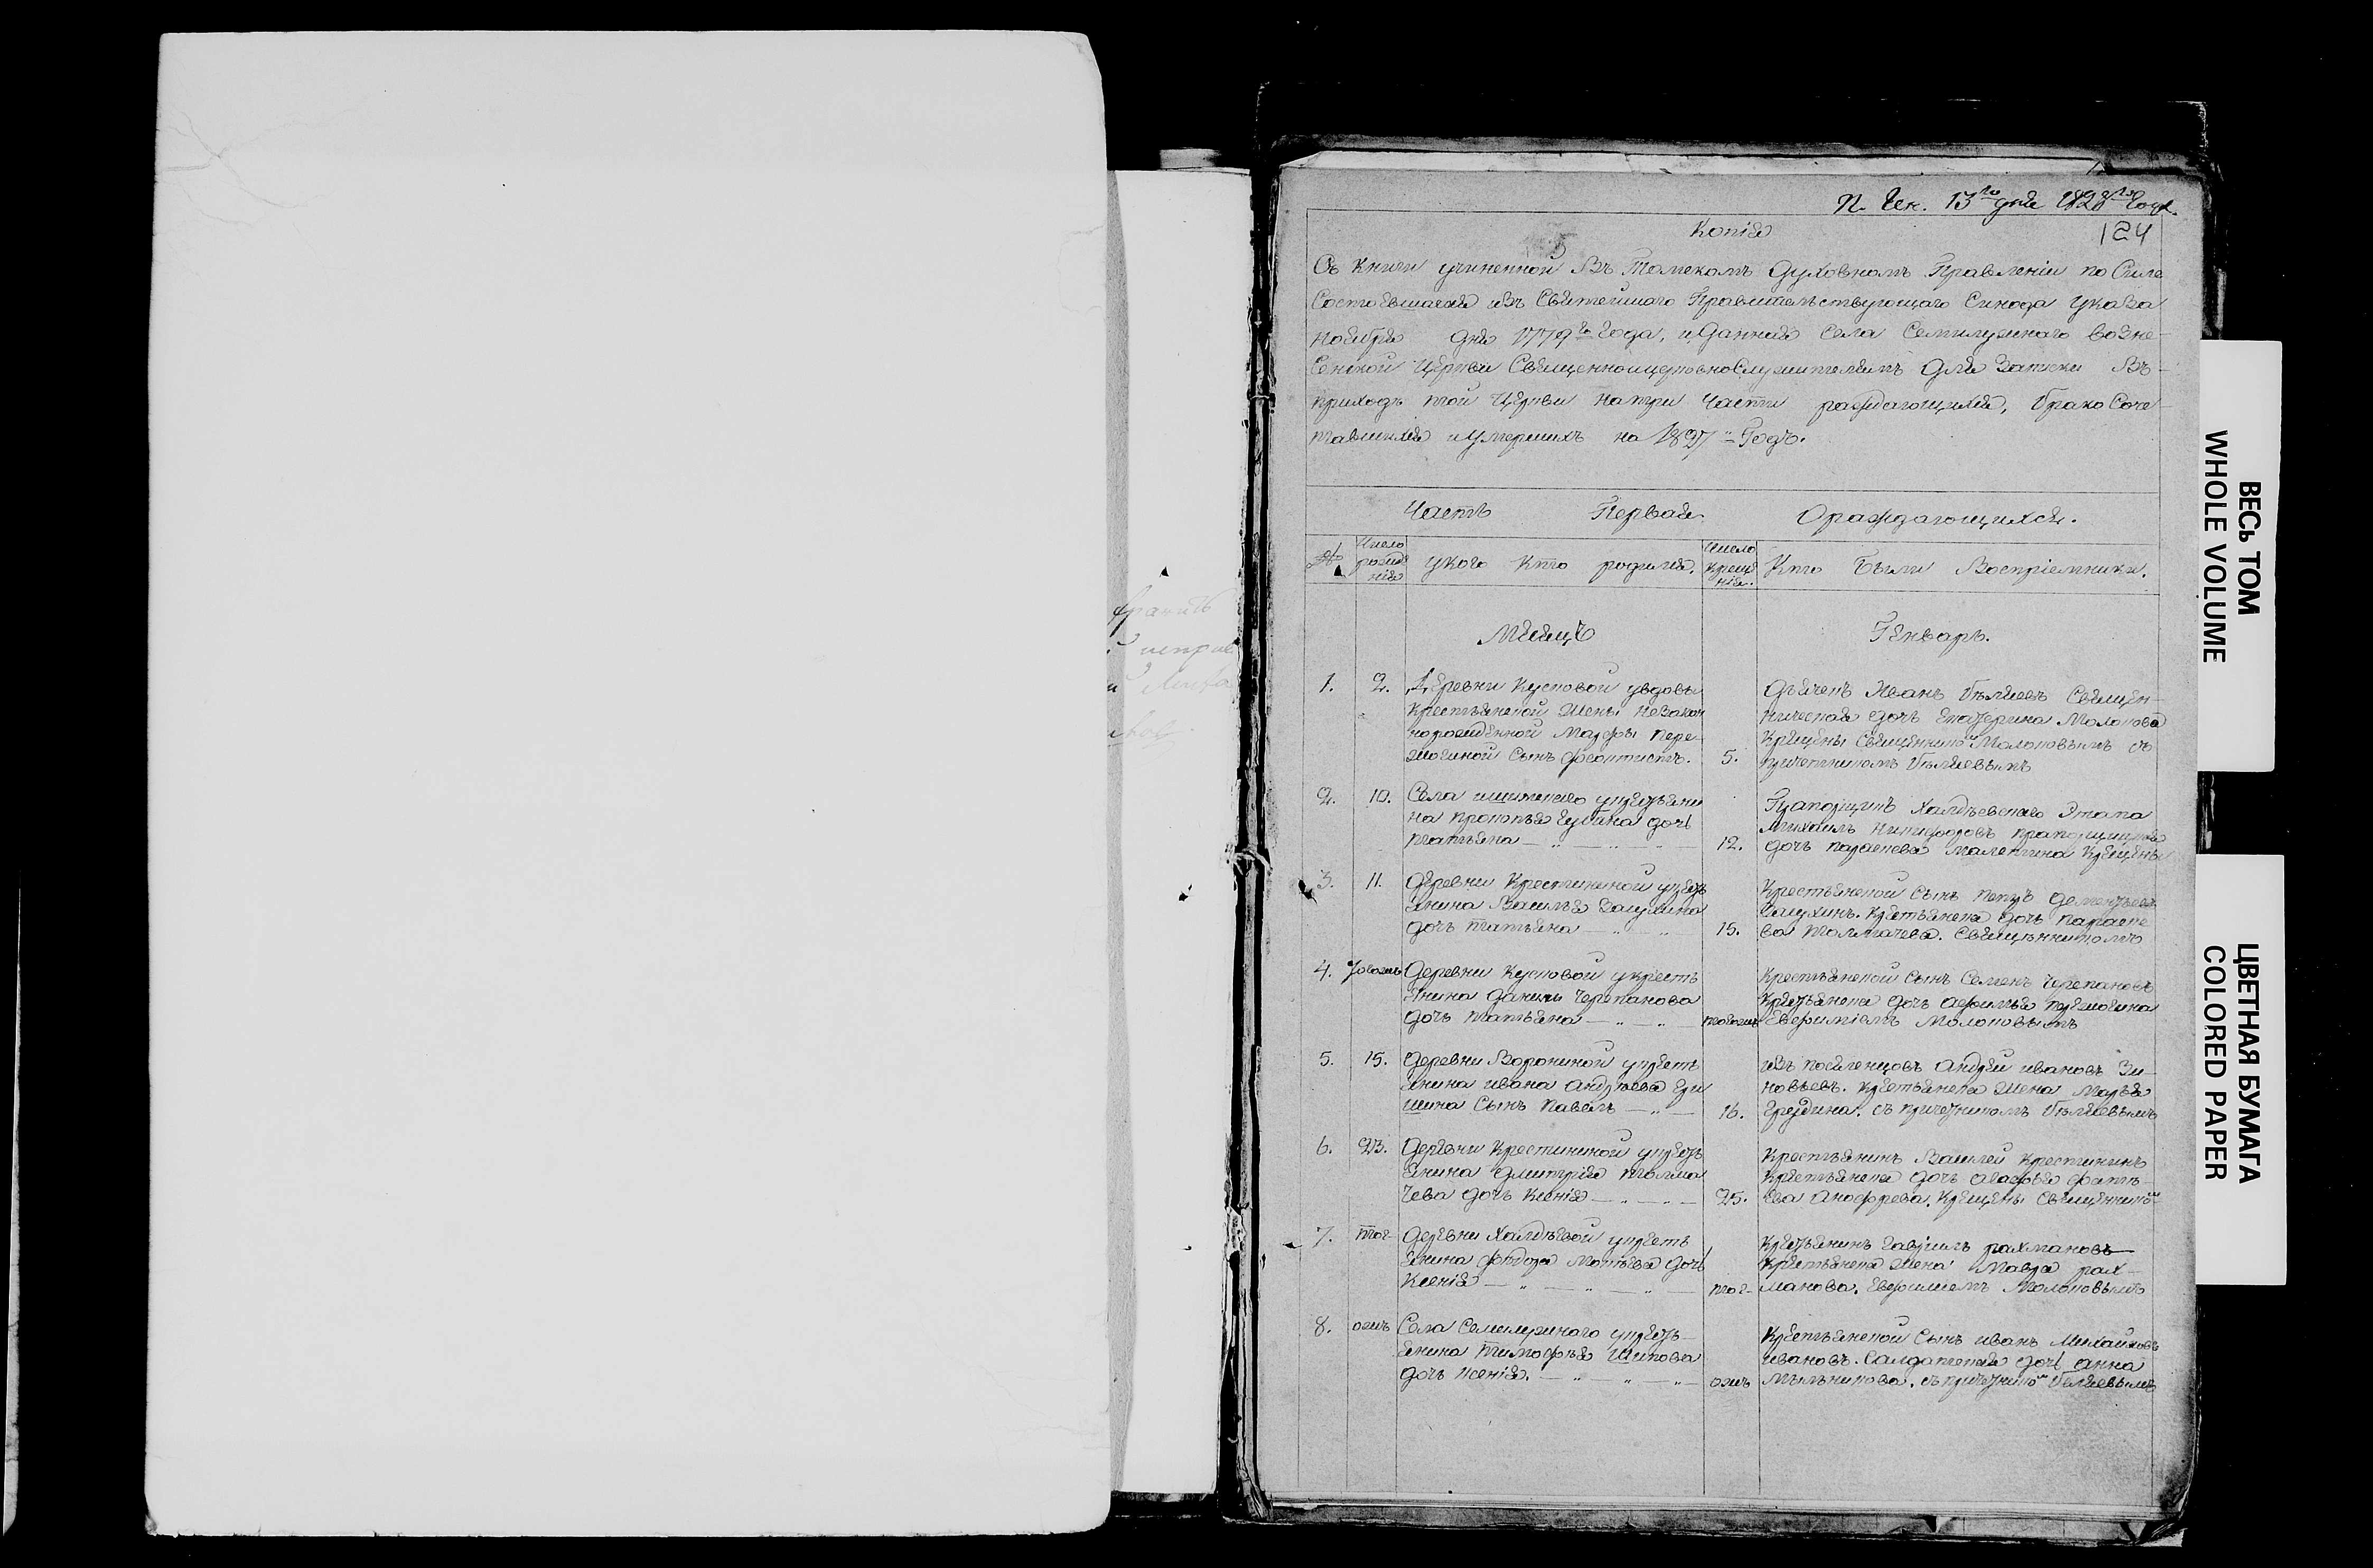 П. Ген. 13го дня 1828го года.
124
Копія
Съ книги учиненной въ Томскомъ Духовномъ Правленіи по Силе
Состоявшагося изъ Святейшаго Правительствующаго Синода Указа
Ноября дня 1779го Года, и данная Села Семилужнаго Возне-
сенской Церкви Священноицерковнослужителямъ для Записки въ
приходъ той Церкви на три Части раждающихся, Брако Соче-
тавшихся и Умершихъ на 1827й Годъ.
Часть Первая О раждающихся.
№ Число рожденія У кого Кто родился. Число крещенія. Кто Были Восприемники.
Месяцъ Генварь.
1. 2. Деревни Кусковой у вдовы
крестьянской Жены незакон
норожденной Марфы Пере-
жогиной Сынъ Феоктистъ. 5.
Дьячекъ Иванъ Беляевъ Священ-
ническая дочь Екатерина Молокова
Крещены Священникомъ Молоковымъ съ
причетникомъ Беляевымъ
2. 10. Села ишимскаго у крестьяни
на Прокопья Губина дочь
Татьяна — „ — „ — „ — 12.
Прапорщикъ Халдеевскаго Этапа
Михаилъ Никифоровъ прапорщицкая
дочь Параскева Малентина Крещены
3. 11. Деревни Крестининой у кресть
янина Василья Захухина
дочь Татьяна — „ — „ 15.
Крестьянской Сынъ Петръ Дементьевъ
Крестьянска дочь Параске
ва Толмачева. Священникомъ
4. Деревни Кусковой у кресть
янина Данилы Черепанова
дочь Татьяна — „ — „ тогожъ
Крестьянской Сынъ Семенъ Черепановъ
Крестьянска дочь Афимья Пережогина
Евфиміемъ Молоковымъ
5. 15. Деревни Ворониной у кресть
янина Ивана Андреева Гри
шина Сынъ Павелъ — „ — 16.
изъ поселенцовъ Андрей Ивановъ Зи-
новьевъ. Крестьянска Жена Марья
съ причетникомъ Беляевымъ
6. 23. Деревни Крестининой у кресть
янина Дмитрія Толма
чева дочь Ксенія — „ — „ — 25.
Крестьянинъ Василей Крестининъ
Крестьянска дочь Агафья Фатѣ-
ева Анофрева. Крещены Священникомъ
7. тог- Деревни Халдеевой у кресть
янина Федора Мотаева дочь
Ксенія — „ — „ — „ — тог-
Крестьянинъ Гаврилъ Рахмановъ
Крестьянска Жена Мавра Рах-
манова. Евфимиемъ Молоковымъ
8. ожъ Села Семилужнаго у кресть-
янина Тимофея Шипова
дочь Ксенія. — „ — „ — „ — ожъ
Крестьянской Сынъ Иванъ Михайловъ
Ивановъ. Салдатская дочь Анна
Мыльникова. съ причетникомъ Беляевымъ
ВЕСЬ ТОМ
WHOLE VOLUME
ЦВЕТНАЯ БУМАГА
COLORED PAPER